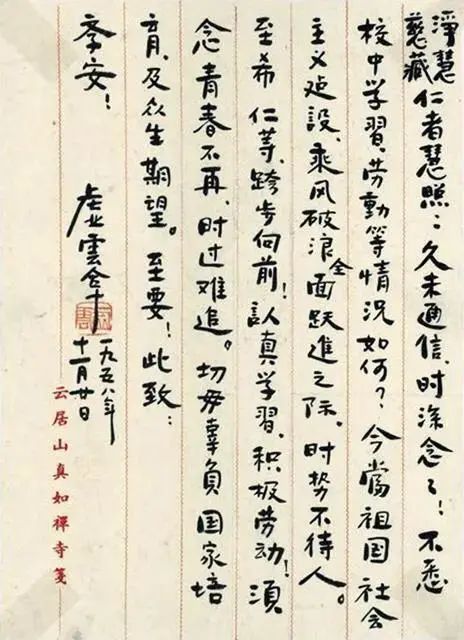 淨慧
慈藏
仁者慧照：久未通信，时深念々！不悉
校中学習、劳動等情况如何？今當祖国社会
主义建設、乘风破浪全面跃進之际，时势不待人。
至希 仁等、跨步向前！認真学習、积极劳动！須
念青春不再，时过难追。切毋辜負国家培
育，及众生期望。至要！此致：
季安！
虛雲合十
一九五八年
十一月廿日
云居山真如禪寺箋